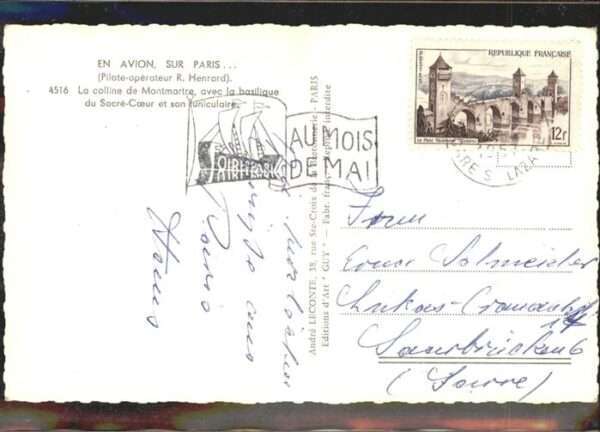 EN AVION, SUR PARIS...
(Pilote-opérateur R. Henrard).
4516 La colline de Montmartre, avec la basilique
du Sacré-Cœur et son funiculaire.
FOIRE DE PARIS
AU MOIS
DE MAI
André LECONTE, 38, rue Ste-Croix de la Bretonnerie - PARIS
Editions d'Art "GUY" - Fabr. franç. Reprod. interdite
REPUBLIQUE FRANÇAISE
12f
GARE S. LAZARE
Paris
Hans
Frau
Erna Schneider
Lukas-Cranach
14
Saarbrücken 6
(Sarre)